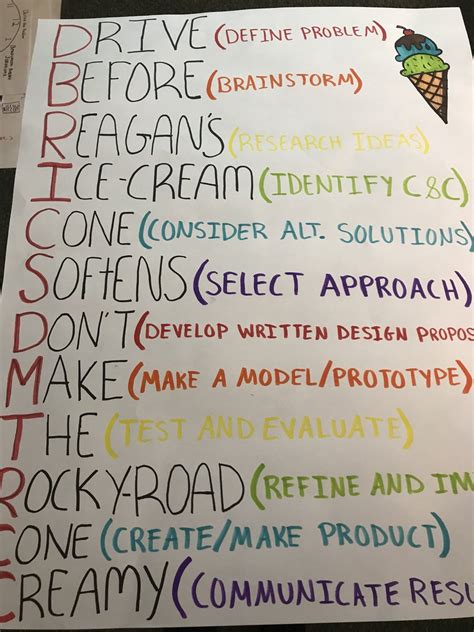 DRIVE (DEFINE PROBLEM)
BEFORE (BRAINSTORM)
REAGAN'S (RESEARCH IDEAS)
ICE-CREAM (IDENTIFY C&C)
CONE (CONSIDER ALT. SOLUTIONS)
SOFTENS (SELECT APPROACH)
DON'T (DEVELOP WRITTEN DESIGN PROPOS
MAKE (MAKE A MODEL/PROTOTYPE)
THE (TEST AND EVALUATE)
ROCKY-ROAD (REFINE AND IM
CONE (CREATE/MAKE PRODUCT)
CREAMY (COMMUNICATE RESU